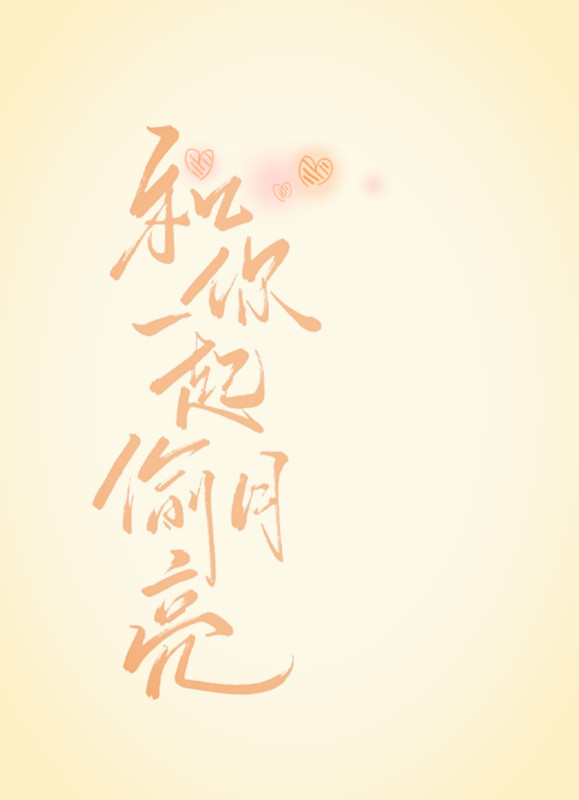 和你
一起
偷月
亮